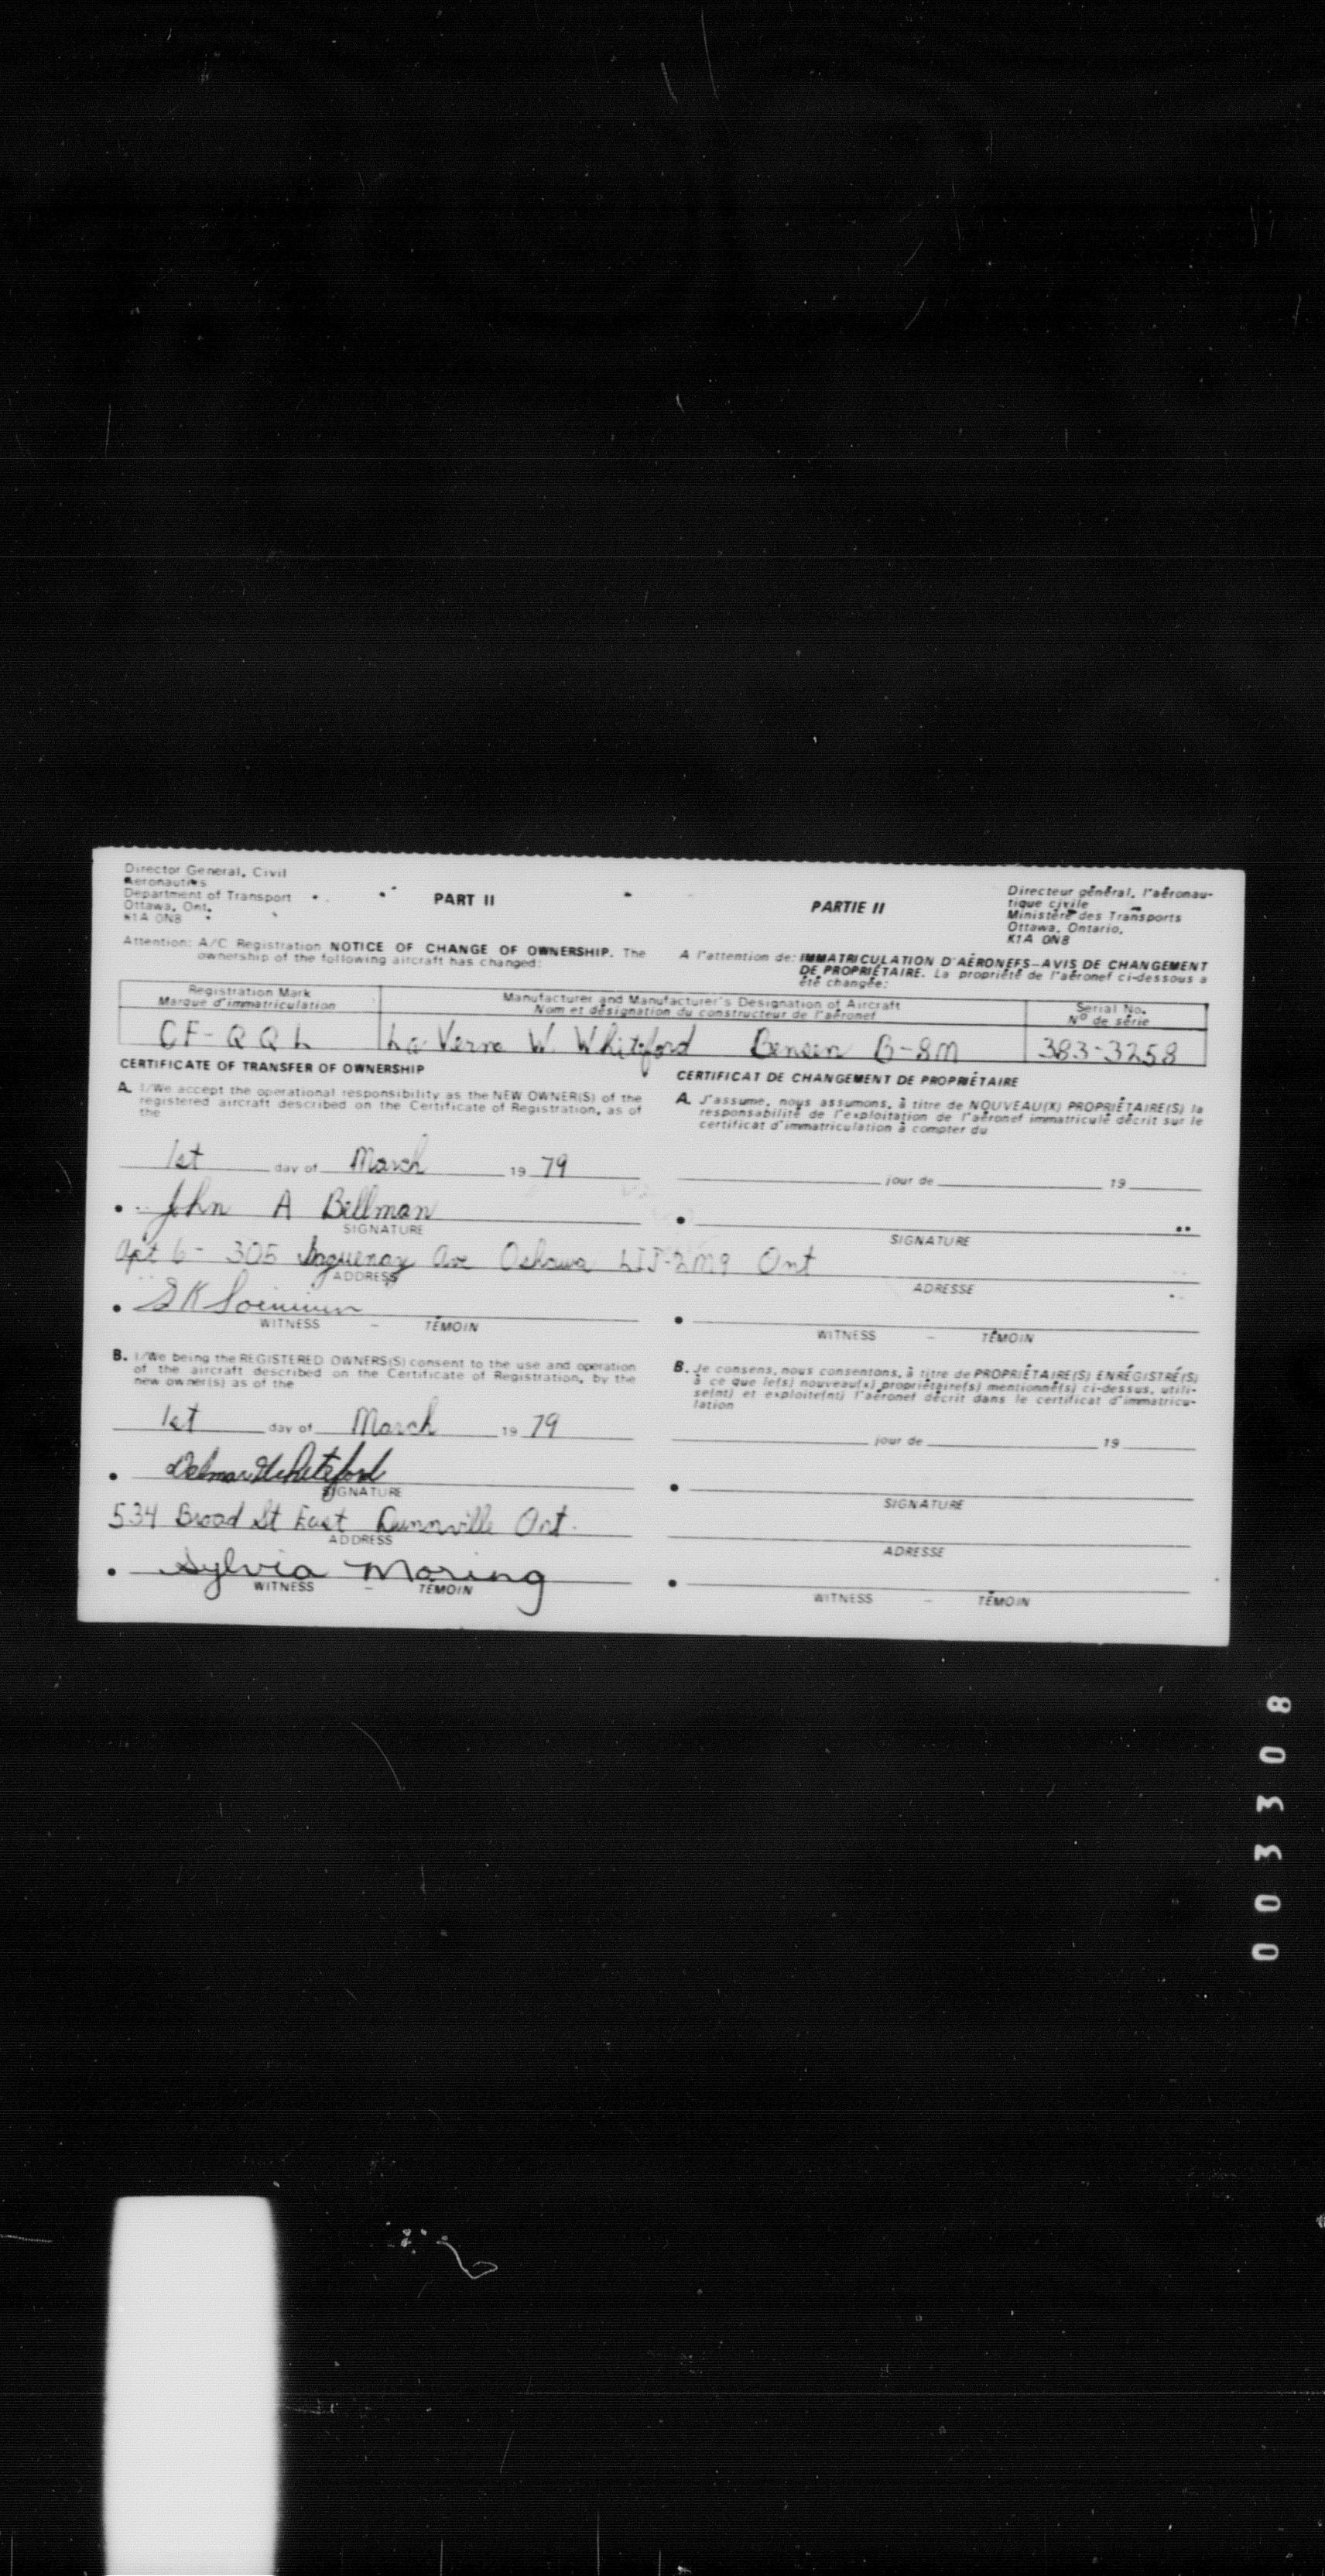 Director General, Civil
Aeronautics
Department of Transport
Ottawa, Ont.
K1A 0N8
PART II
PARTIE II
Directeur général, l'aéronau-
tique civile
Ministère des Transports
Ottawa, Ontario,
K1A 0N8
Attention: A/C Registration NOTICE OF CHANGE OF OWNERSHIP. The
ownership of the following aircraft has changed:
A l'attention de: IMMATRICULATION D'AÉRONEFS—AVIS DE CHANGEMENT
DE PROPRIÉTAIRE. La propriété de l'aéronef ci-dessous a
été changée:
Registration Mark
Marque d'immatriculation
Manufacturer and Manufacturer's Designation of Aircraft
Nom et désignation du constructeur de l'aéronef
Serial No.
Nº de série
CF-QQL
La Verne W. Whiteford Bensen B-8M
383-3258
CERTIFICATE OF TRANSFER OF OWNERSHIP
A. I/We accept the operational responsibility as the NEW OWNER(S) of the
registered aircraft described on the Certificate of Registration, as of
the
1st day of March 19 79
John A Bellman
SIGNATURE
Apt 6 - 305 Ave Oshawa L1J-2M9 Ont
ADDRESS
S K
WITNESS – TÉMOIN
B. I/We being the REGISTERED OWNERS(S) consent to the use and operation
of the aircraft described on the Certificate of Registration, by the
new owner(s) as of the
1st day of March 19 79
Delmar Whiteford
SIGNATURE
534 Broad St East Dunnville Ont.
ADDRESS
Sylvia Moring
WITNESS – TÉMOIN
CERTIFICAT DE CHANGEMENT DE PROPRIÉTAIRE
A. J'assume, nous assumons, à titre de NOUVEAU(X) PROPRIÉTAIRE(S) la
responsabilité de l'exploitation de l'aéronef immatriculé décrit sur le
certificat d'immatriculation à compter du
jour de 19
SIGNATURE
ADRESSE
WITNESS – TÉMOIN
B. Je consens, nous consentons, à titre de PROPRIÉTAIRE(S) ENRÉGISTRÉ(S)
à ce que le(s) nouveau(x) propriétaire(s) mentionné(s) ci-dessus, utili-
se(nt) et exploite(nt) l'aéronef décrit dans le certificat d'immatricu-
lation
jour de 19
SIGNATURE
ADRESSE
WITNESS – TÉMOIN
003308